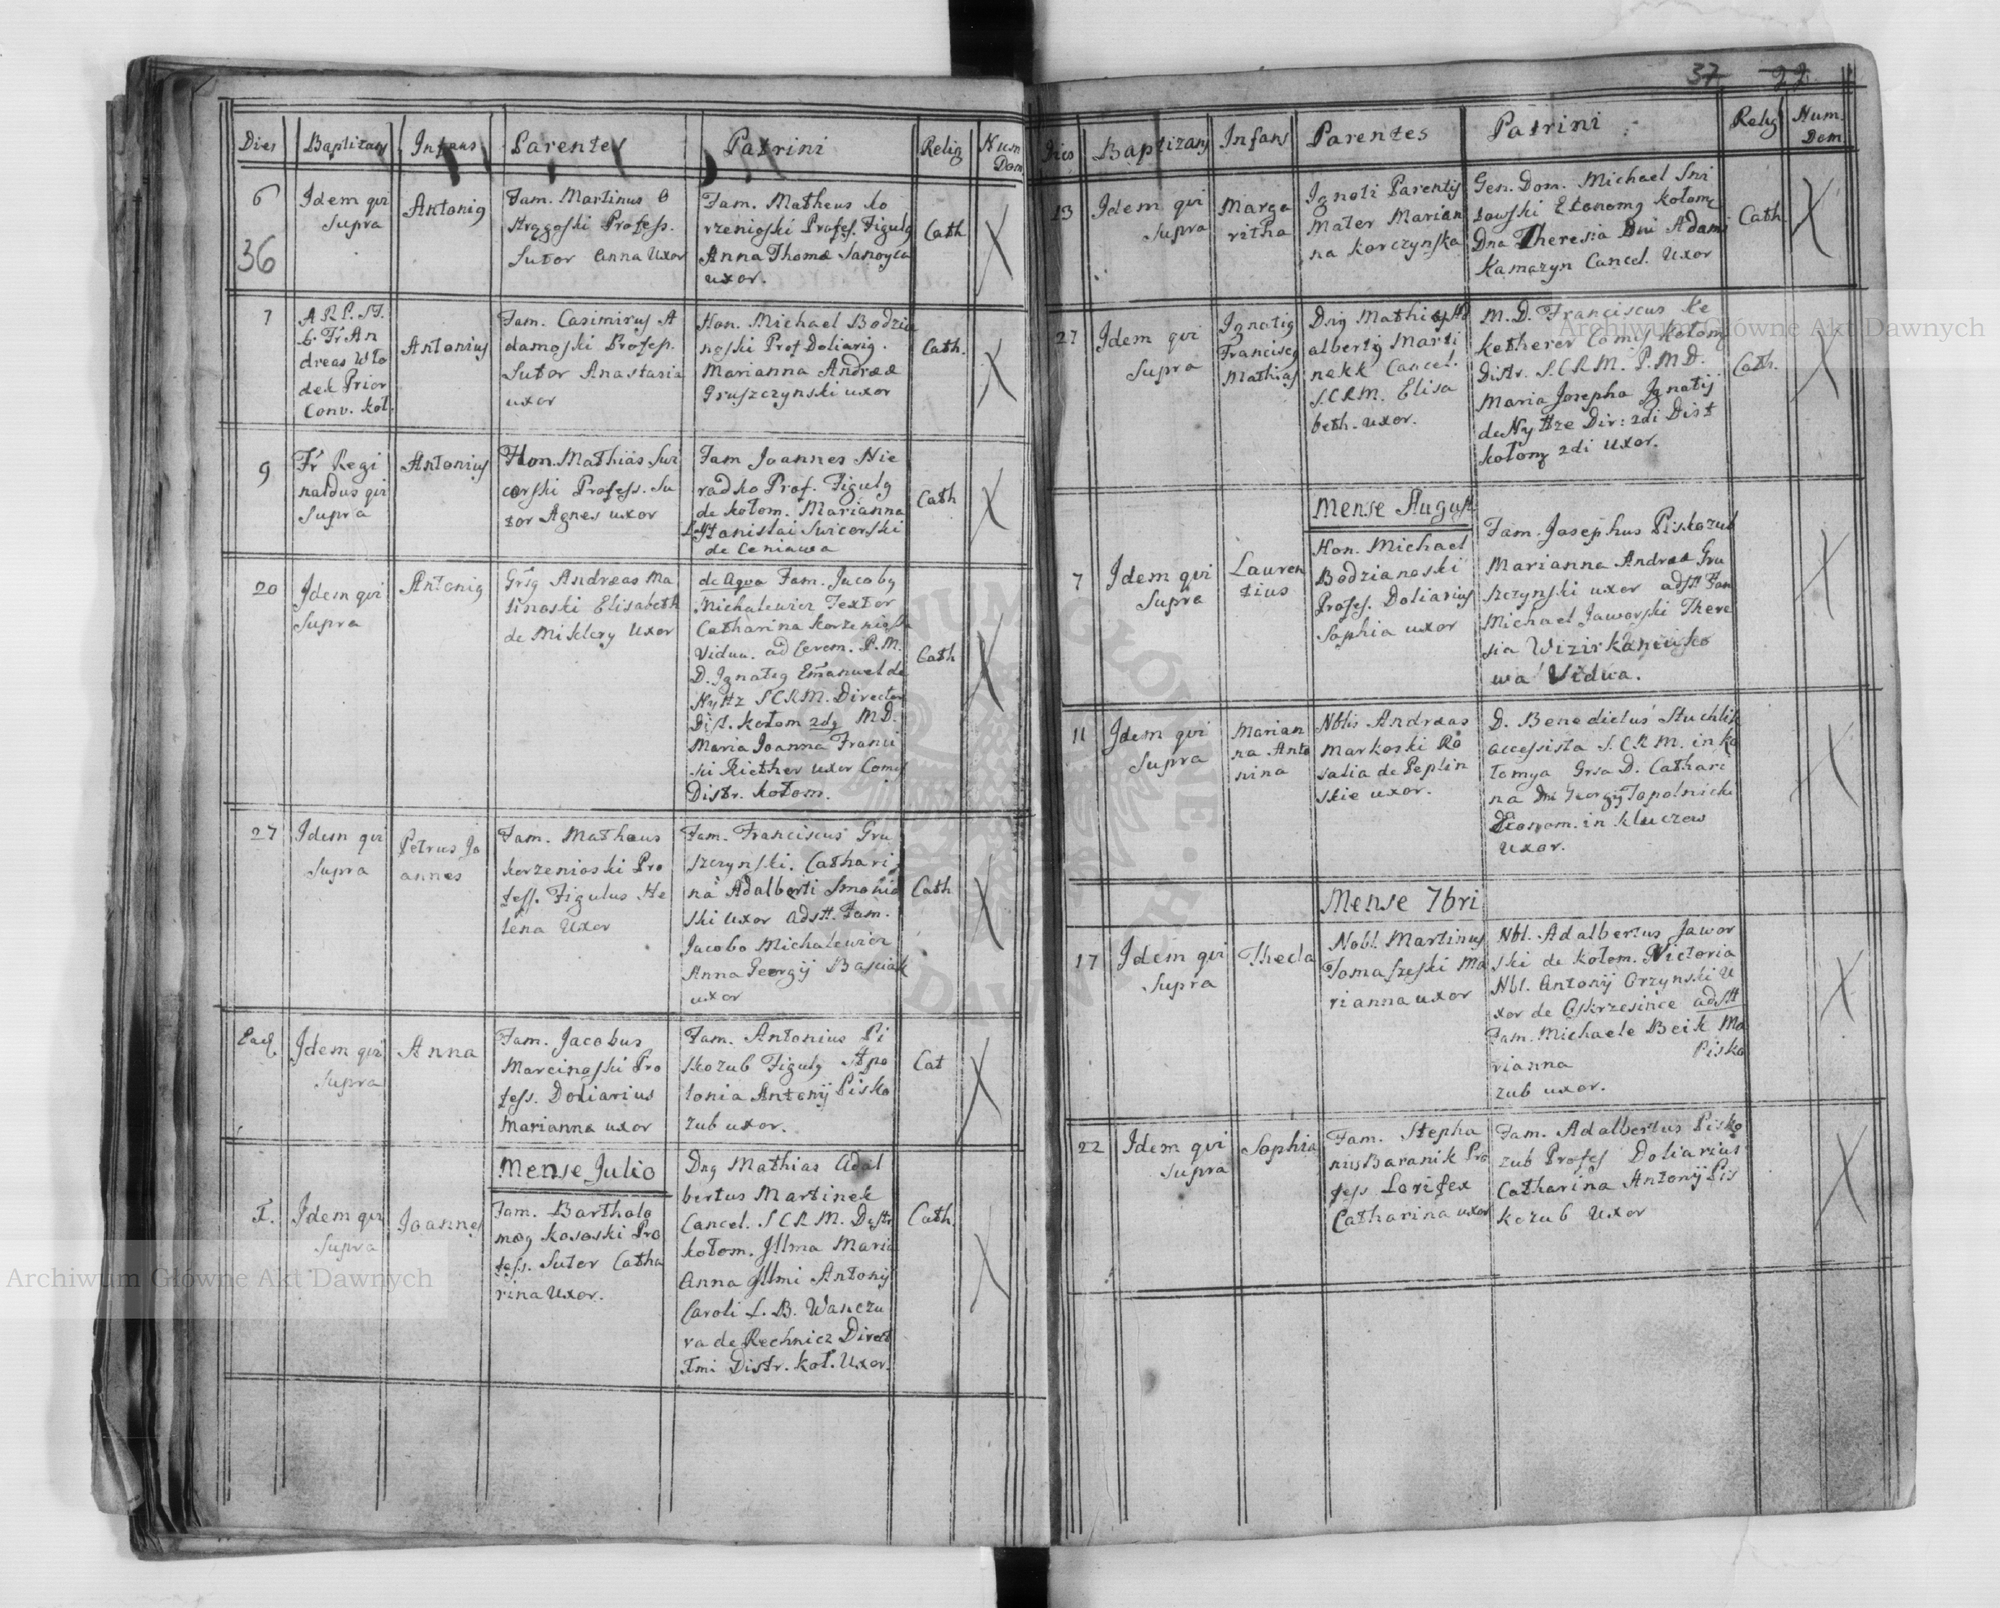 Dies Baptizans Infans Parentes Patrini Relig Num Dom
6
36
Idem qui
supra
Antonig
Fam. Martinus O
strzgoski Profess.
Sutor Anna Uxor
Fam. Matheus Ko
rzenioski Profes. Figulg
Anna Thomæ Sanoyca
uxor.
Cath
7
A.R.P. ST.
b. Fr An
dreas Wło
dek Prior
Conv. Koł.
Antonius
Fam. Casimirus A
damoski Profess.
Sutor Anastasia
uxor
Hon. Michael Bodzia
noski Prof Doliarig.
Marianna Andreæ
Gruszczynski uxor
Cath.
9
Fr Regi
naldus qui
supra
Antonius
Hon. Mathias Swi
corski Profess. Su
tor Agnes uxor
Fam Joannes Nie
radko Prof. Figulg
de Kołom. Marianna
Stanislai Swicorski
de Ceniawa
Cath
20
Idem qui
supra
Antonig
Grsg Andreas Ma
sinoski Elisabeth
de Miklery Uxor
de Aqua Fam. Jacobg
Michalewicz Textor
Catharina Korzenioska
Vidua. ad Cerem. P.M.
D. Ignatig Emanuel de
Nyttz S.C.R.M. Director
Dist. Kołom 2dg M.D.
Maria Joanna Franci
ski Kiether uxor Comis
Distr. Kołom.
Cath
27
Idem qui
supra
Petrus Jo
annes
Fam. Matheus
Korzenioski Pro
fess. Figulus He
lena Uxor
Fam. Franciscus Gru
szczynski. Cathari
na Adalberti Smolin
ski uxor adstt. Fam.
Jacobo Michalewicz
Anna Georgij Basiak
uxor
Cath
Ead.
Idem qui
supra
Anna
Fam. Jacobus
Marcinoski Pro
fess. Doliarius
Marianna uxor
Fam. Antonius Pi
skozub Figulg Apo
lonia Antonij Pisko
zub uxor.
Cat
Mense Julio
1.
Idem qui
supra
Joannes
Fam. Bartholo
mæg Kososki Pro
fess. Sutor Catha
rina Uxor.
Dng Mathias Adal
bertus Martinek
Cancel. S.C.R.M. Distr
Kołom. Illma Maria
Anna Illmi Antonij
Caroli L. B. Wanczu
ra de Rechnicz Direct
1mi Distr. Koł. Uxor.
Cath.
37 22
Dies Baptizans Infans Parentes Patrini Relig Num. Dom
13
Idem qui
supra
Marga
ritha
Ignoti Parentis
Mater Marian
na Korczynska
Gen. Dom. Michael Sni
towski Ekonomg Kołom
Dna Theresia Dni Adami
Kamazyn Cancel. Uxor
Cath
27
Idem qui
supra
Ignatig
Franciscg
Mathias
Dng Mathias Ad
albertg Marti
nekk Cancel.
S.C.R.M. Elisa
beth. uxor.
M.D. Franciscus Ke
ketherer Comis Kołom
Distr. S.C.R.M. P.M.D.
Maria Josepha Ignatij
de Nyttze Dir: 2di Dist
Kołom 2di uxor.
Cath.
Mense August
7
Idem qui
supra
Lauren
tius
Hon. Michael
Bodzianoski
Profes. Doliarius
Sophia uxor
Fam. Josephus Piskozub
Marianna Andreæ Gru
szczynski uxor adstt Fam
Michael Jaworski There
sia Wizirkaniisko
wa Vidua.
11
Idem qui
supra
Marian
na Anto
nina
Nblis Andreas
Markoski Ro
salia de Peplin
skie uxor.
D. Benedictus Stuchlik
accessista S.C.R.M. in Ko
łomya Grsa D. Cathari
na Dni Georgij Topolnicki
Econom. in Kluczow
Uxor.
Mense 7bri
17
Idem qui
supra
Thecla
Nobl. Martinus
Tomaszeski Ma
rianna uxor
Nbl. Adalbertus Jawor
ski de Kołom. Victoria
Nbl. Antonij Orzynski U
xor de Oskrzesince adstt
Fam. Michaele Beik Ma
rianna Pisko
zub uxor.
22
Idem qui
supra
Sophia
Fam. Stepha
nus Baranik Pro
fess Lorifex
Catharina uxor
Fam. Adalbertus Pisko
zub Profes Doliarius
Catharina Antonij Pis
kozub Uxor
Archiwum Główne Akt Dawnych
Archiwum Główne Akt Dawnych